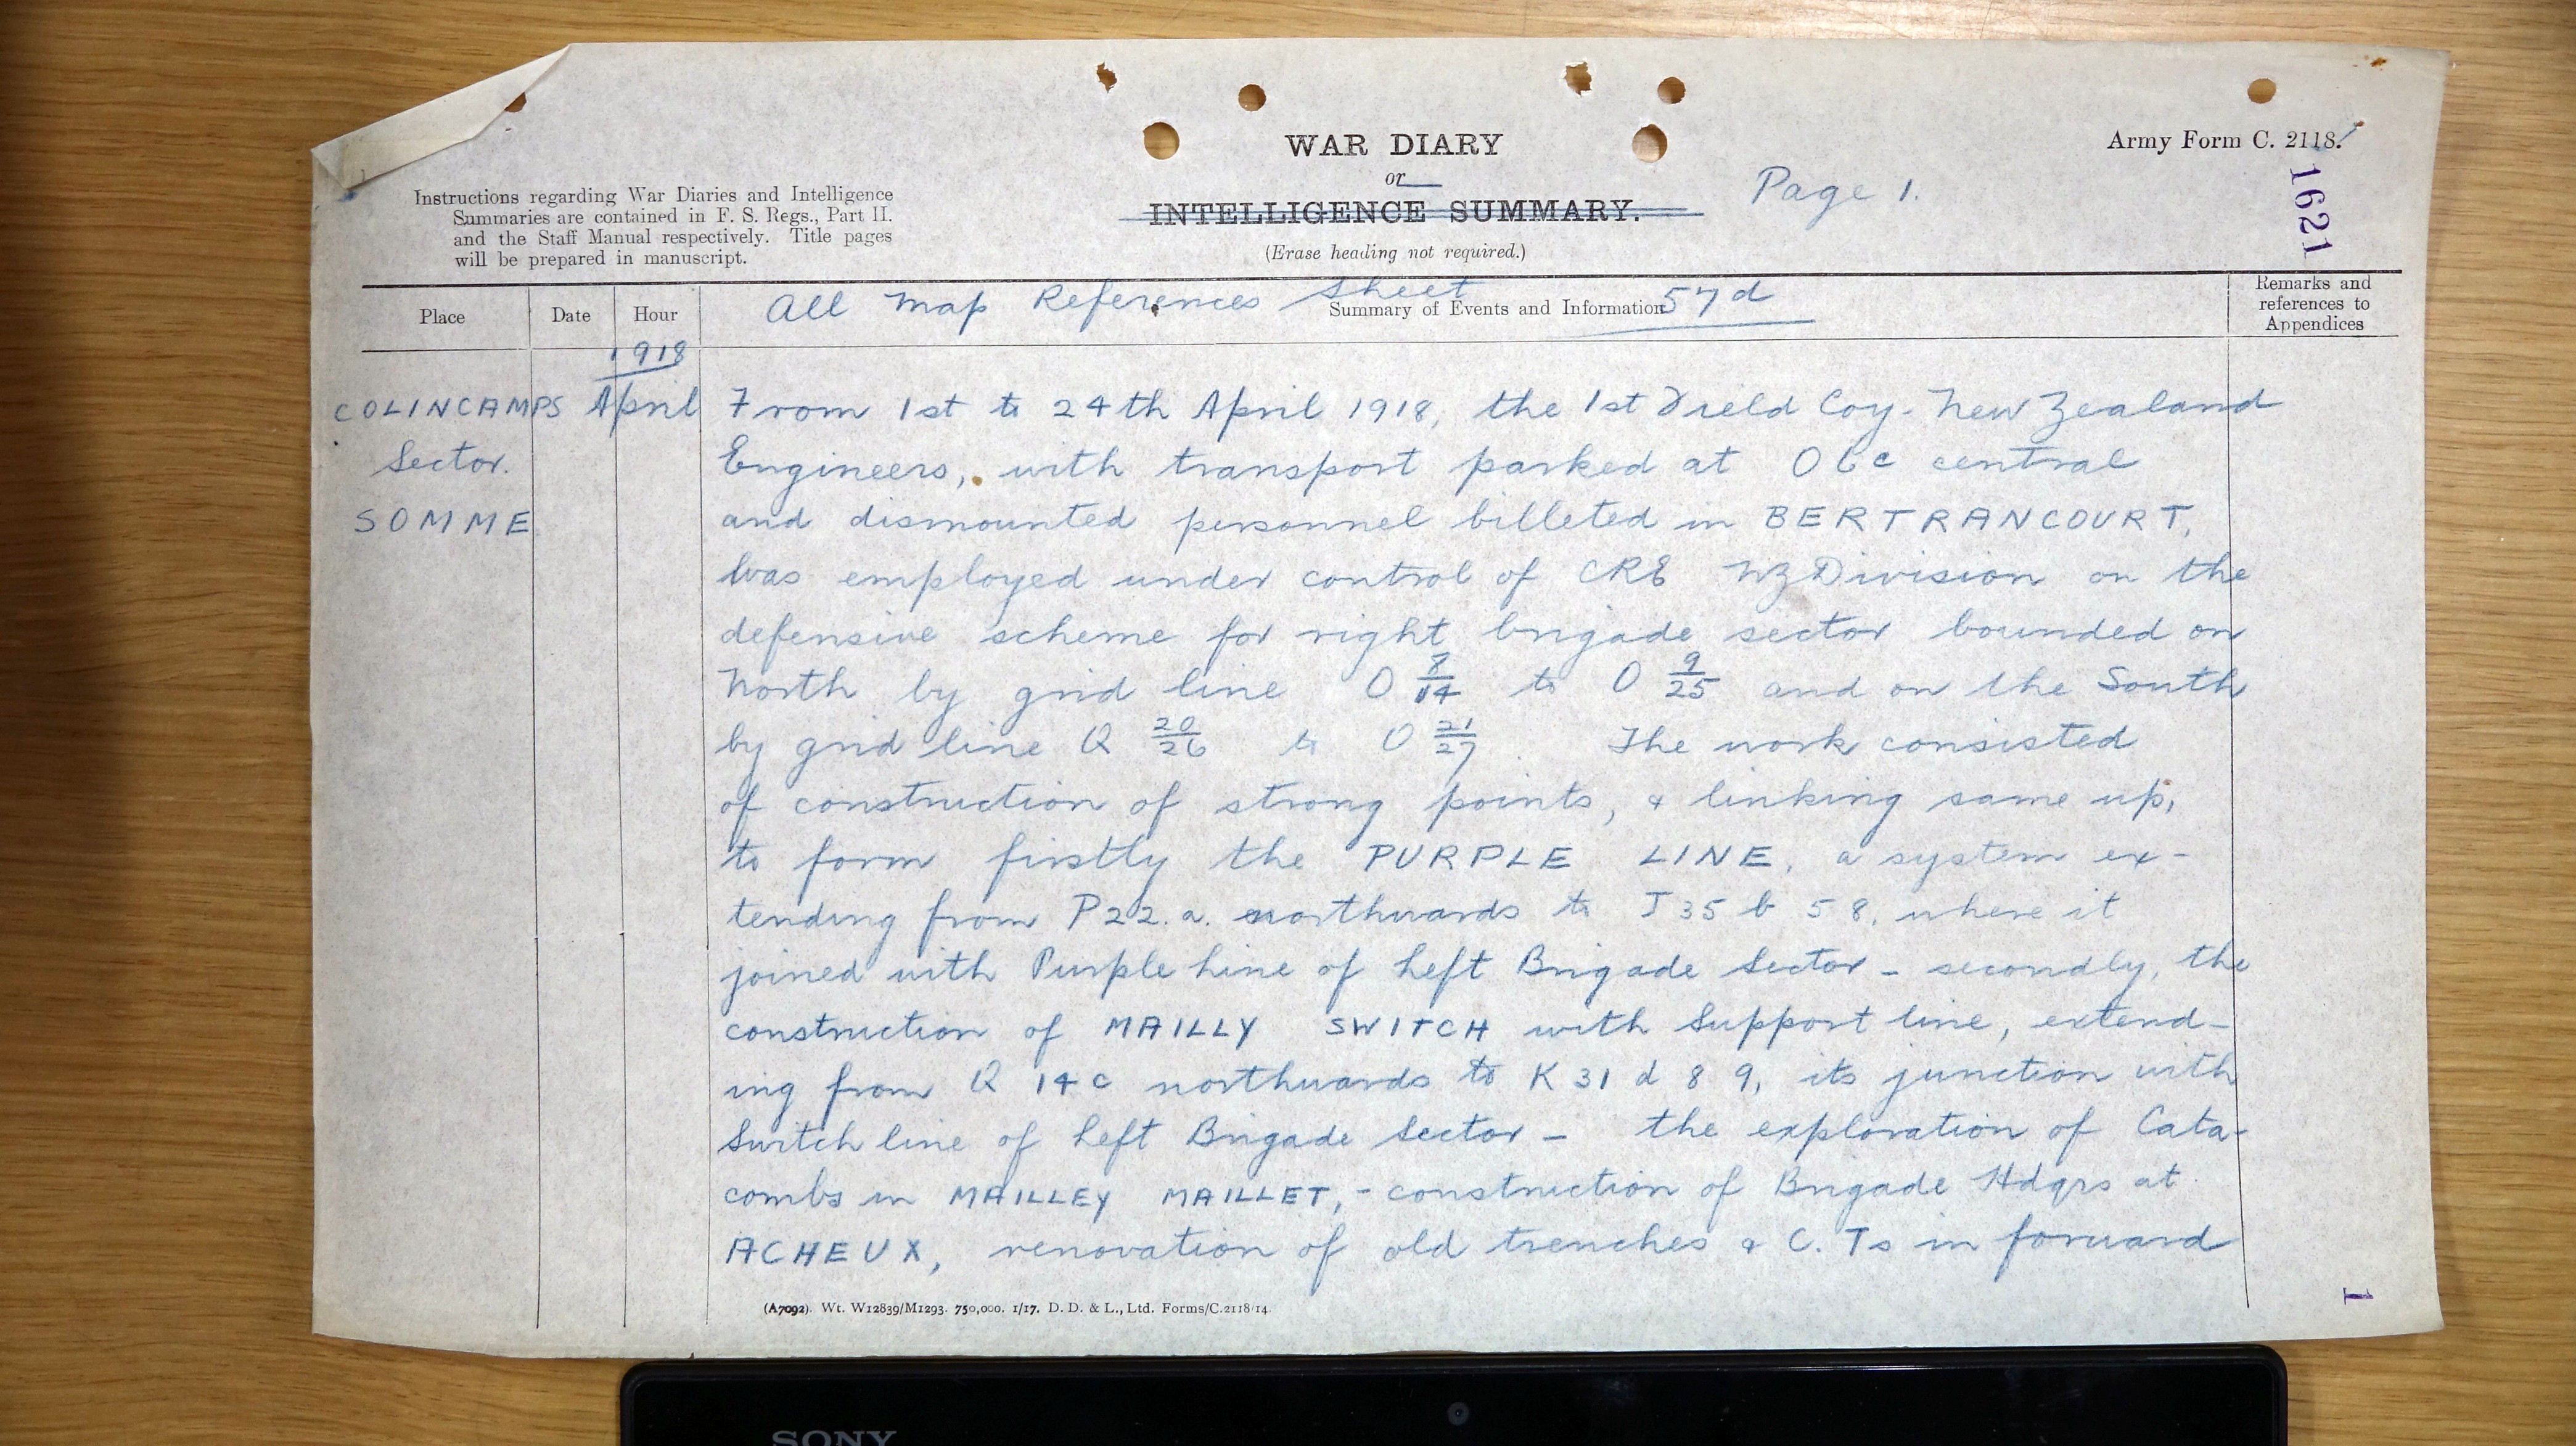 WAR DIARY
or
INTELLIGENCE SUMMARY.
(Erase heading not required.)
Page 1.
Army Form C. 2118.
1621
Instructions regarding War Diaries and Intelligence
Summaries are contained in F. S. Regs., Part II.
and the Staff Manual respectively. Title pages
will be prepared in manuscript.
Place
Date
Hour
Summary of Events and Information
Remarks and
references to
Appendices
All Map References Sheet 57d
1918
COLINCAMPS April
Sector.
SOMME
From 1st to 24th April 1918, the 1st Field Coy. New Zealand
Engineers, with transport parked at O 6 c central
and dismounted personnel billeted in BERTRANCOURT,
was employed under control of CRE NZ Division on the
defensive scheme for right brigade sector bounded on
North by grid line O 8/14 to O 9/25 and on the South
by grid line Q 20/26 to O 21/27. The work consisted
of construction of strong points, & linking same up,
to form firstly the PURPLE LINE, a system ex-
tending from P22.a. northwards to J 35 b 5 8, where it
joined with Purple line of Left Brigade Sector - secondly, the
construction of MAILLY SWITCH with Support line, extend-
ing from Q 14 c northwards to K 31 d 8 9, its junction with
Switch line of Left Brigade Sector - the exploration of Cata-
combs in MAILLEY MAILLET, - construction of Brigade Hdqrs at
ACHEUX, renovation of old trenches & C. Ts in forward
(A7092). Wt. W12839/M1293. 750,000. 1/17. D. D. & L., Ltd. Forms/C.2118/14.
1
SONY